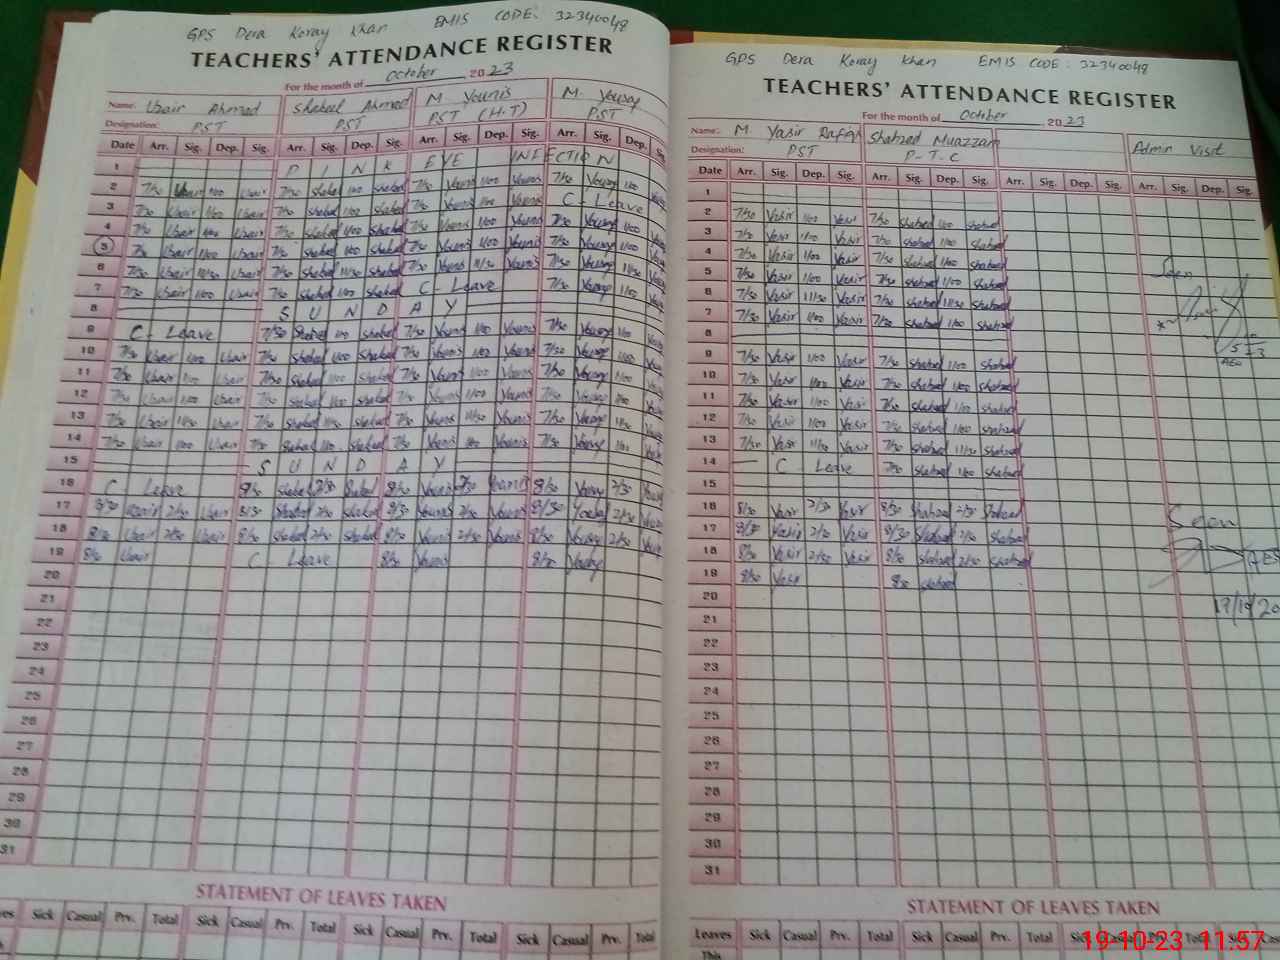 GPS Dera Koray Khan EMIS CODE: 32340048
TEACHERS' ATTENDANCE REGISTER
For the month of October 2023
Name: Ubair Ahmad Shakeel Ahmad M Younis M. Yousaf
Designation: PST PST PST (H.T) PST
Date Arr. Sig. Dep. Sig. Arr. Sig. Dep. Sig. Arr. Sig. Dep. Sig. Arr. Sig. Dep. Sig.
1 PINK EYE INFECTION
2 7/30 Ubair 1/00 Ubair 7/30 Shakeel 1/00 Shakeel 7/30 Younis 1/00 Younis 7/30 Yousaf 1/00
3 7/30 Ubair 1/00 Ubair 7/30 Shakeel 1/00 Shakeel 7/30 Younis 1/00 Younis C-Leave
4 7/30 Ubair 1/00 Ubair 7/30 Shakeel 1/00 Shakeel 7/30 Younis 1/00 Younis 7/30 Yousaf 1/00
5 7/30 Ubair 1/00 Ubair 7/30 Shakeel 1/00 Shakeel 7/30 Younis 1/00 Younis 7/30 Yousaf 1/00
6 7/30 Ubair 11/30 Ubair 7/30 Shakeel 11/30 Shakeel 7/30 Younis 11/30 Younis 7/30 Yousaf 11/30
7 7/30 Ubair 1/00 Ubair 7/30 Shakeel 1/00 Shakeel C-Leave 7/30 Yousaf 1/00
8 SUNDAY
9 C-Leave 7/30 Shakeel 1/00 Shakeel 7/30 Younis 1/00 Younis 7/30 Yousaf 1/00
10 7/30 Ubair 1/00 Ubair 7/30 Shakeel 1/00 Shakeel 7/30 Younis 1/00 Younis 7/30 Yousaf 1/00
11 7/30 Ubair 1/00 Ubair 7/30 Shakeel 1/00 Shakeel 7/30 Younis 1/00 Younis 7/30 Yousaf 1/00
12 7/30 Ubair 1/00 Ubair 7/30 Shakeel 1/00 Shakeel 7/30 Younis 1/00 Younis 7/30 Yousaf 1/00
13 7/30 Ubair 11/30 Ubair 7/30 Shakeel 11/30 Shakeel 7/30 Younis 11/30 Younis 7/30 Yousaf 11/30
14 7/30 Ubair 1/00 Ubair 7/30 Shakeel 1/00 Shakeel 7/30 Younis 1/00 Younis 7/30 Yousaf 1/00
15 SUNDAY
16 C-Leave 8/30 Shakeel 2/30 Shakeel 8/30 Younis 2/30 Younis 8/30 Yousaf 2/30 Yousaf
17 8/30 Ubair 2/30 Ubair 8/30 Shakeel 2/30 Shakeel 8/30 Younis 2/30 Younis 8/30 Yousaf 2/30
18 8/30 Ubair 2/30 Ubair 8/30 Shakeel 2/30 Shakeel 8/30 Younis 2/30 Younis 8/30 Yousaf 2/30
19 8/30 Ubair C-Leave 8/30 Younis 8/30 Yousaf
20
21
22
23
24
25
26
27
28
29
30
31
STATEMENT OF LEAVES TAKEN
Sick Casual Prv. Total Sick Casual Prv. Total Sick Casual Prv. Total Sick Casual Prv. Total
GPS Dera Koray Khan EMIS CODE: 32340048
TEACHERS' ATTENDANCE REGISTER
For the month of October 2023
Name: M. Yasir Rafiq Shahzad Muazzam Admin Visit
Designation: PST P-T-C
Date Arr. Sig. Dep. Sig. Arr. Sig. Dep. Sig. Arr. Sig. Dep. Sig. Arr. Sig. Dep. Sig.
1
2 7/30 Yasir 1/00 Yasir 7/30 Shahzad 1/00 Shahzad
3 7/30 Yasir 1/00 Yasir 7/30 Shahzad 1/00 Shahzad
4 7/30 Yasir 1/00 Yasir 7/30 Shahzad 1/00 Shahzad
5 7/30 Yasir 1/00 Yasir 7/30 Shahzad 1/00 Shahzad Seen
6 7/30 Yasir 11/30 Yasir 7/30 Shahzad 11/30 Shahzad
7 7/30 Yasir 1/00 Yasir 7/30 Shahzad 1/00 Shahzad
8
9 7/30 Yasir 1/00 Yasir 7/30 Shahzad 1/00 Shahzad
10 7/30 Yasir 1/00 Yasir 7/30 Shahzad 1/00 Shahzad
11 7/30 Yasir 1/00 Yasir 7/30 Shahzad 1/00 Shahzad
12 7/30 Yasir 1/00 Yasir 7/30 Shahzad 1/00 Shahzad
13 7/30 Yasir 11/30 Yasir 7/30 Shahzad 11/30 Shahzad
14 C-Leave 7/30 Shahzad 1/00 Shahzad
15
16 8/30 Yasir 2/30 Yasir 8/30 Shahzad 2/30 Shahzad Seen
17 8/30 Yasir 2/30 Yasir 8/30 Shahzad 2/30 Shahzad
18 8/30 Yasir 2/30 Yasir 8/30 Shahzad 2/30 Shahzad
19 8/30 Yasir 8/30 Shahzad
20 19/10/20
21
22
23
24
25
26
27
28
29
30
31
STATEMENT OF LEAVES TAKEN
Leaves Sick Casual Prv. Total Sick Casual Prv. Total Sick Casual Prv. Total Sick
This
19-10-23 11:57